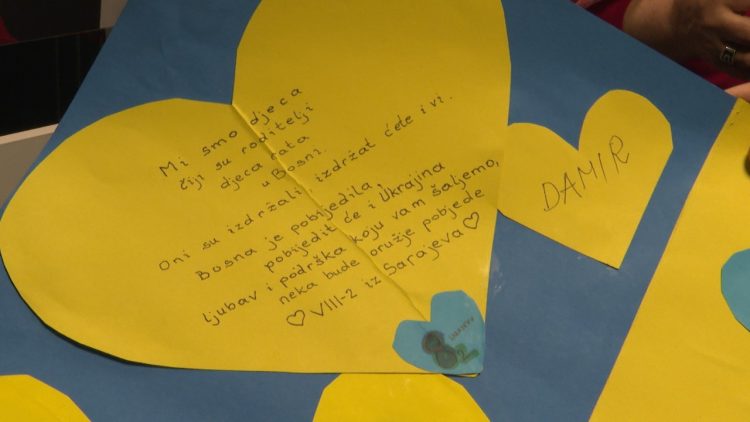 Mi smo djeca
čiji su roditelji
djeca rata
u Bosni.
Oni su izdržali, izdržat ćete i vi.
Bosna je pobijedila,
pobijedit će i Ukrajina
ljubav i podrška koju vam šaljemo,
neka bude oružje pobjede
♡ VIII-2 iz Sarajeva ♡
82
DAMIR